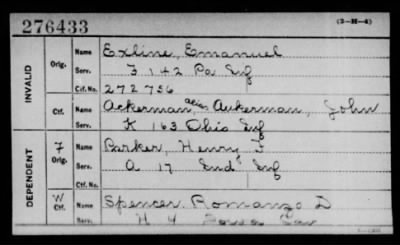 276433
(3-H-4)
INVALID
Orig.
Name Exline, Emanuel
Serv. F 142 Pa Inf
Ctf. No. 272756
Ctf.
Name Ackerman, alias Aukerman, John
Serv. K 163 Ohio Inf
DEPENDENT
F
Orig.
Name Barker, Henry F
Serv. A 17 Ind Inf
Ctf. No.
W
Ctf.
Name Spencer Romanzo D
Serv. H 4 Iowa Cav